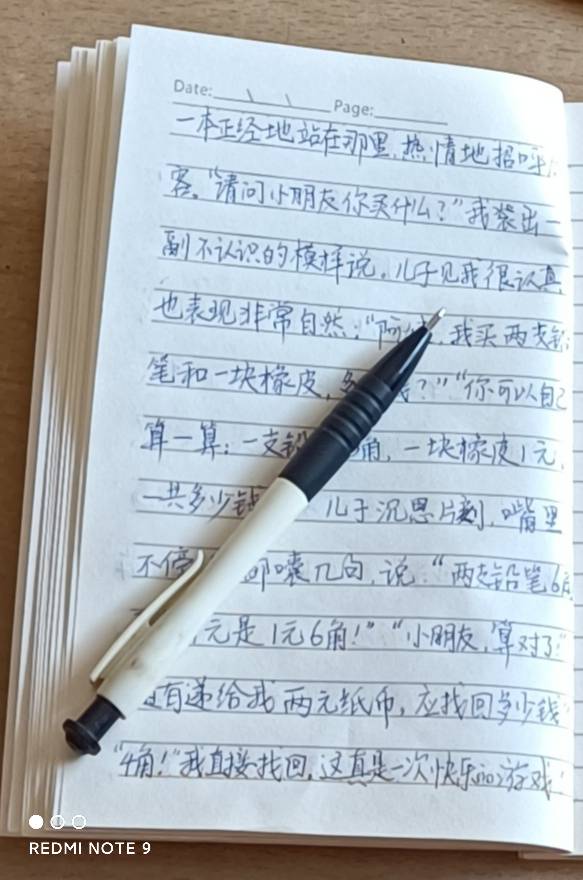 Date: Page:
一本正经地站在那里,热情地招呼
客。"请问小朋友你买什么?"我装出一
副不认识的模样说。儿子见我很认真,
也表现非常自然:"阿 我买两支铅
笔和一块橡皮, ?""你可以自己
算一算:一支铅 角,一块橡皮1元,
一共多少钱 儿子沉思片刻,嘴里
不停 嘟囔几句,说:"两支铅笔6角,
元是1元6角!""小朋友,算对了!"
有递给我两元纸币,应找回多少钱
"4角!"我直接找回,这真是一次快乐的游戏!
REDMI NOTE 9